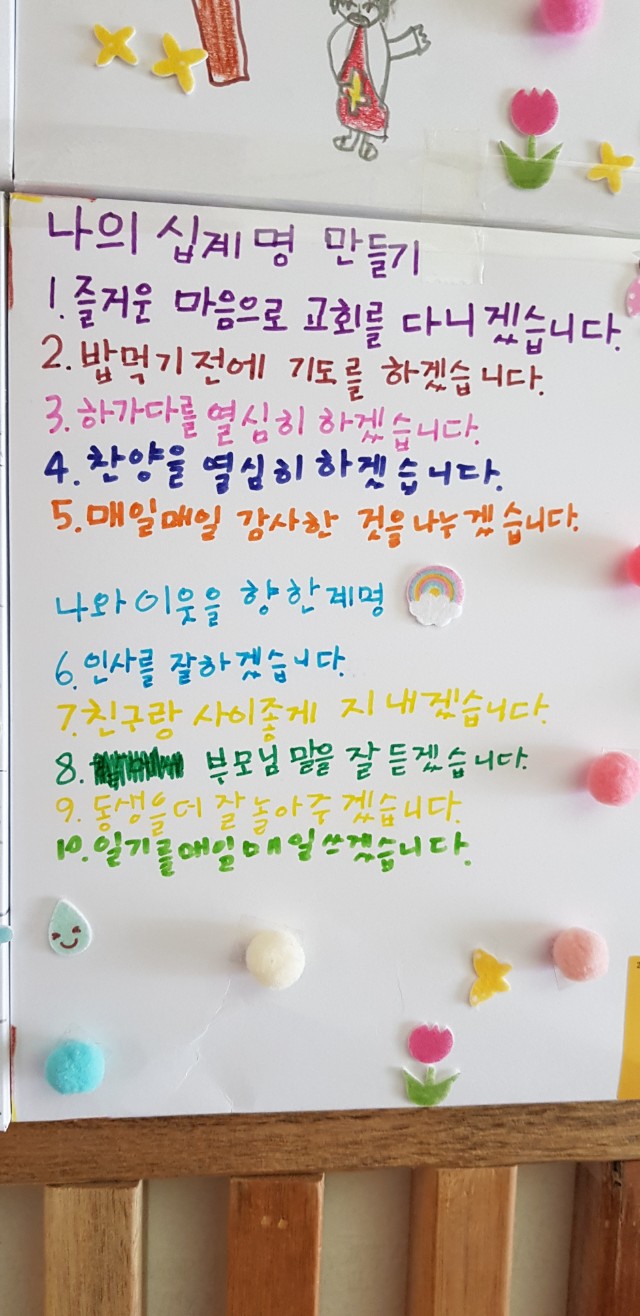 나의 십계명 만들기
1. 즐거운 마음으로 교회를 다니겠습니다.
2. 밥먹기전에 기도를 하겠습니다.
3. 하가다를 열심히 하겠습니다.
4. 찬양을 열심히 하겠습니다.
5. 매일매일 감사한 것을 나누겠습니다.
나와 이웃을 향한계명
6. 인사를 잘하겠습니다.
7. 친구랑 사이좋게 지내겠습니다.
8. 부모님 말을 잘 듣겠습니다.
9. 동생을더 잘 놀아주겠습니다.
10. 일기를매일매일쓰겠습니다.